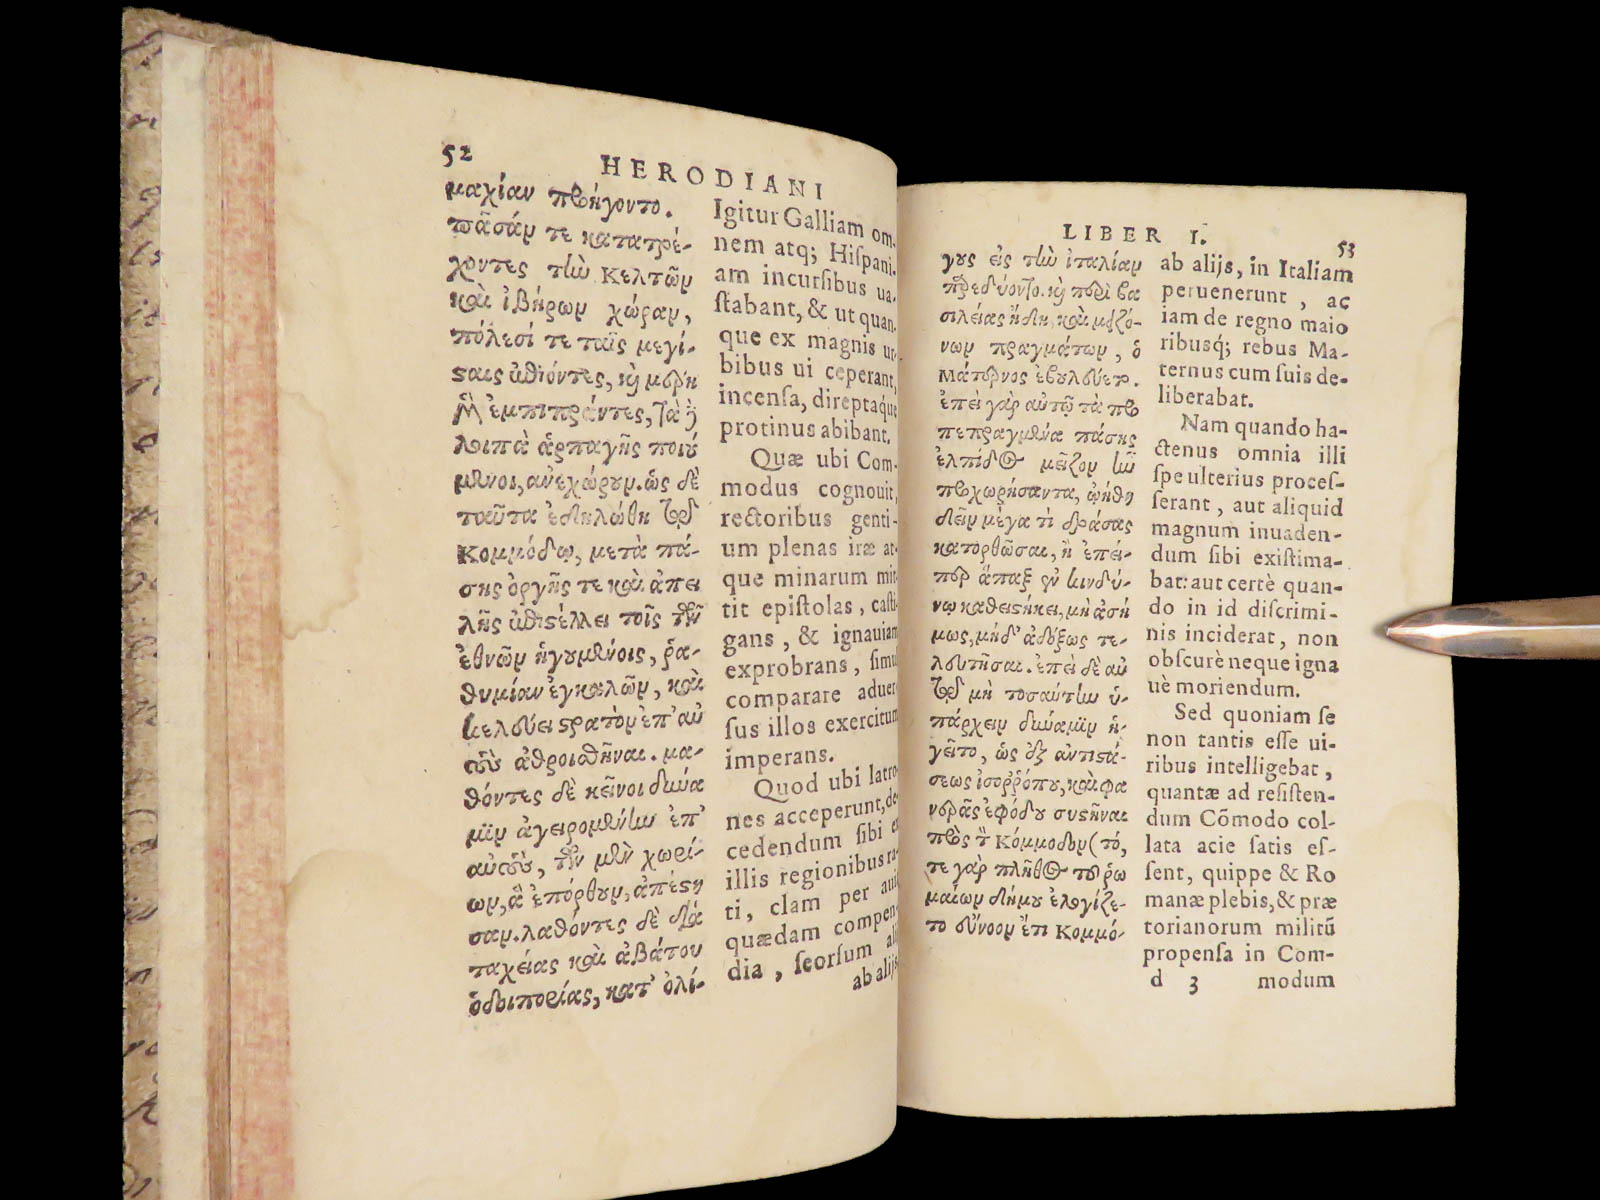 52
HERODIANI
μαχίαν προήγοντο.
πᾶσάν τε κατατρέ-
χοντες τὴν Κελτῶν
καὶ ἰβήρων χώραν,
πόλεσί τε ταῖς μεγί-
σαις ἐπιόντες, καὶ μέρη
μὲν ἐμπιπράντες, τὰ δὲ
λοιπὰ ἁρπαγῆς ποιού
μενοι, ἀνεχώρουν. ὡς δὲ
ταῦτα ἐδηλώθη τῷ
Κομμόδῳ, μετὰ πά-
σης ὀργῆς τε καὶ ἀπει
λῆς ἐπιστέλλει τοῖς τῶν
ἐθνῶν ἡγουμένοις, ῥα-
θυμίαν ἐγκαλῶν, καὶ
κελεύει στρατὸν ἐπ' αὐ
τοὺς ἀθροισθῆναι. μα-
θόντες δὲ κεῖνοι δύνα
μιν ἀγειρομένην ἐπ'
αὐτοὺς, τῶν μὲν χωρί-
ων, ἃ ἐπόρθουν, ἀπέστη
σαν. λαθόντες δὲ διὰ
ταχείας καὶ ἀβάτου
ὁδοιπορίας, κατ' ὀλί-
Igitur Galliam om-
nem atq; Hispani-
am incursibus ua-
stabant, & ut quan-
que ex magnis ur-
bibus ui ceperant,
incensa, direptaque
protinus abibant.
Quæ ubi Com-
modus cognouit,
rectoribus genti-
um plenas iræ at-
que minarum mit-
tit epistolas, casti-
gans, & ignauiam
exprobrans, simul
comparare aduer-
sus illos exercitum
imperans.
Quod ubi latro-
nes acceperunt, de-
cedendum sibi ex
illis regionibus ra-
ti, clam per auia
quædam compen-
dia, seorsum alij
ab alijs,
LIBER I.
53
γους εἰς τὴν ἰταλίαν
παρεδύοντο. καὶ περὶ βα
σιλείας ἤδη, καὶ μειζό-
νων πραγμάτων, ὁ
Μάτερνος ἐβουλεύετο.
ἐπεὶ γὰρ αὐτῷ τὰ προ
πεπραγμένα πάσης
ἐλπίδος μεῖζον ἦν
προχωρήσαντα, ᾠήθη
δεῖν μέγα τι δράσας
κατορθῶσαι, ἢ ἐπεί-
περ ἅπαξ ἐν κινδύ-
νῳ καθειστήκει, μὴ ἀσή
μως, μηδ' ἀδόξως τε-
λευτῆσαι. ἐπεὶ δὲ αὐ
τῷ μὴ τοσαύτην ὑ-
πάρχειν δύναμιν ἡ-
γεῖτο, ὡς ἐξ ἀντιστά-
σεως ἰσορρόπου, καὶ φα
νερᾶς ἐφόδου συστῆναι
πρὸς τὸν Κόμμοδον (τό,
τε γὰρ πλῆθος τοῦ ῥω
μαίων δήμου ἐλογίζε-
το εὔνοον ἔτι Κομμό-
ab alijs, in Italiam
peruenerunt, ac
iam de regno maio
ribusq́; rebus Ma-
ternus cum suis de-
liberabat.
Nam quando ha-
ctenus omnia illi
spe ulterius proces-
serant, aut aliquid
magnum inuaden-
dum sibi existima-
bat: aut certè quan-
do in id discrimi-
nis inciderat, non
obscurè neque igna
uè moriendum.
Sed quoniam se
non tantis esse ui-
ribus intelligebat,
quantæ ad resisten-
dum Cõmodo col-
lata acie satis es-
sent, quippe & Ro
manæ plebis, & præ
torianorum militũ
propensa in Com-
d 3 modum